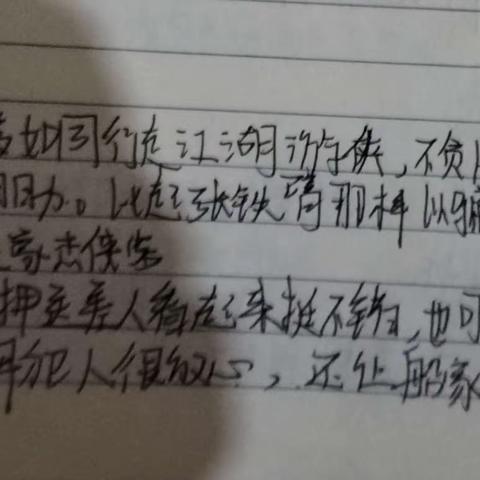 如同行走江湖游侠，不负
助。比起张铁
豪杰侠客
押送差人看起来挺不错，也可
犯人很放心，还让船家